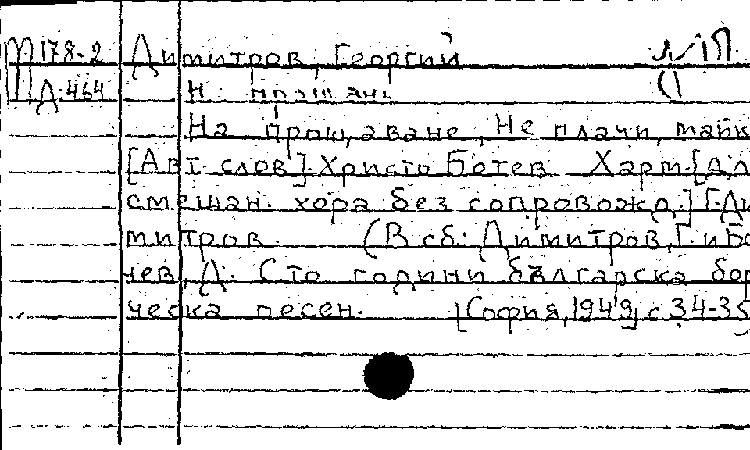 М178-2 Димитров, Георгий
Д.464
На прощаване, Не плачи, майк
[Авт. слов.] Христо Ботев Харм. [дл
смешан. хора без сопровожд.] Г. Ди
митров. (В сб: Димитров, Г. и Бо
чев, Д. Сто години българска бор
ческа песен. [София, 1949] с 34-35